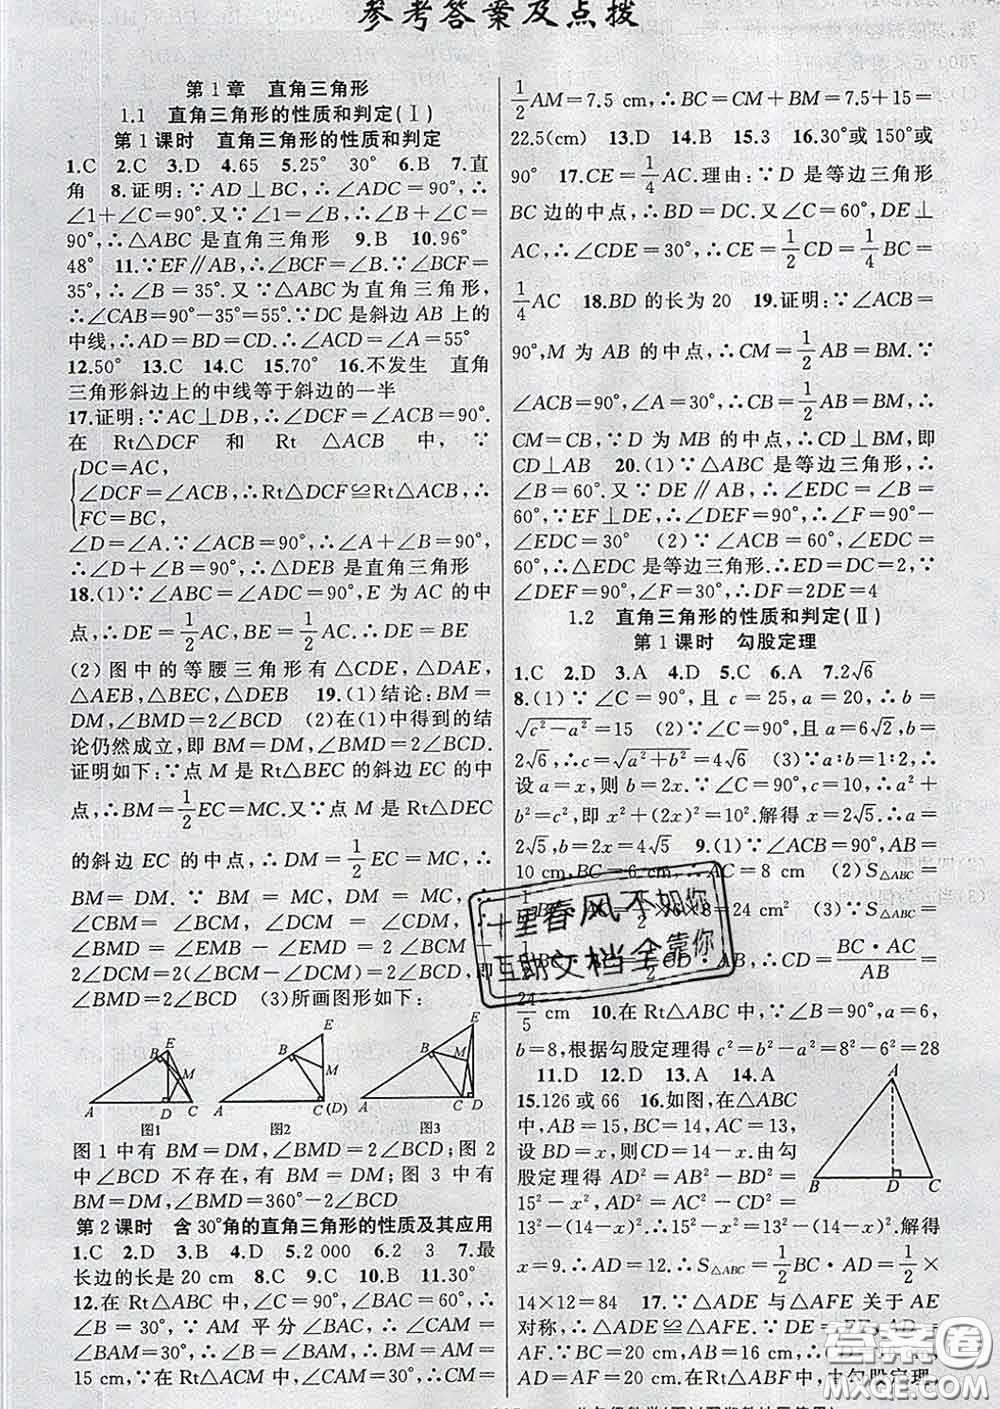 参考答案及点拨
第1章 直角三角形
1.1 直角三角形的性质和判定(Ⅰ)
第1课时 直角三角形的性质和判定
1.C 2.C 3.D 4.65 5.25° 30° 6.B 7.直
角 8.证明:∵AD⊥BC,∴∠ADC=90°,∴
∠1+∠C=90°.又∵∠1=∠B,∴∠B+∠C=
90°,∴△ABC是直角三角形 9.B 10.96°
48° 11.∵EF∥AB,∴∠BCF=∠B.∵∠BCF=
35°,∴∠B=35°.又∵△ABC为直角三角形,
∴∠CAB=90°-35°=55°.∵DC是斜边AB上的
中线,∴AD=BD=CD.∴∠ACD=∠A=55°
12.50° 13.C 14.C 15.70° 16.不发生 直角
三角形斜边上的中线等于斜边的一半
17.证明:∵AC⊥DB,∴∠DCF=∠ACB=90°.
在 Rt△DCF 和 Rt△ACB 中,∵
{DC=AC,
∠DCF=∠ACB,∴Rt△DCF≌Rt△ACB,∴
FC=BC,
∠D=∠A.∵∠ACB=90°,∴∠A+∠B=90°,
∴∠D+∠B=90°,∴△DEB是直角三角形
18.(1)∵∠ABC=∠ADC=90°,E为AC的中
点,∴DE=1/2AC,BE=1/2AC.∴DE=BE
(2)图中的等腰三角形有△CDE,△DAE,
△AEB,△BEC,△DEB 19.(1)结论:BM=
DM,∠BMD=2∠BCD (2)在(1)中得到的结
论仍然成立,即BM=DM,∠BMD=2∠BCD.
证明如下:∵点M是Rt△BEC的斜边EC的中
点,∴BM=1/2EC=MC.又∵点M是Rt△DEC
的斜边EC的中点,∴DM=1/2EC=MC,∴
BM=DM. ∵BM=MC,DM=MC,∴
∠CBM=∠BCM,∠DCM=∠CDM,∴
∠BMD=∠EMB-∠EMD=2∠BCM-
2∠DCM=2(∠BCM-∠DCM)=2∠BCD,即
∠BMD=2∠BCD (3)所画图形如下:
E B M A D C
图1
E B M A C(D)
图2
E B M A C D
图3
图1中有BM=DM,∠BMD=2∠BCD;图2
中∠BCD不存在,有BM=DM;图3中有
BM=DM,∠BMD=360°-2∠BCD
第2课时 含30°角的直角三角形的性质及其应用
1.C 2.D 3.B 4.D 5.2 000 6.2 3 7.最
长边的长是20 cm 8.C 9.C 10.B 11.30°
12.在Rt△ABC中,∠C=90°,∠BAC=60°,∴
∠B=30°,∵AM平分∠BAC,∴∠CAM=
∠BAM=30°,∴∠B=∠BAM,∴BM=AM=
15 cm,∵在Rt△ACM中,∠CAM=30°,∴CM=
1/2AM=7.5 cm,∴BC=CM+BM=7.5+15=
22.5(cm) 13.D 14.B 15.3 16.30°或150°或
90° 17.CE=1/4AC.理由:∵D是等边三角形
BC边的中点,∴BD=DC.又∠C=60°,DE⊥
AC,∴∠CDE=30°,∴CE=1/2CD=1/4BC=
1/4AC 18.BD的长为20 19.证明:∵∠ACB=
90°,M为AB的中点,∴CM=1/2AB=BM.∵
∠ACB=90°,∠A=30°,∴CB=1/2AB=BM,∴
CM=CB=BM,∵D为MB的中点,∴CD⊥BM,即
CD⊥AB 20.(1)∵△ABC是等边三角形,∴
∠B=60°.又∵DE∥AB,∴∠EDC=∠B=
60°,∵EF⊥DE,∴∠DEF=90°,∴∠F=90°-
∠EDC=30° (2)∵∠ACB=60°,∠EDC=
60°,∴△EDC是等边三角形.∴ED=DC=2,∵
∠DEF=90°,∠F=30°,∴DF=2DE=4
1.2 直角三角形的性质和判定(Ⅱ)
第1课时 勾股定理
1.C 2.D 3.A 4.D 5.C 6.A 7.2√6
8.(1)∵∠C=90°,且c=25,a=20,∴b=
√(c²-a²)=15 (2)∵∠C=90°,且a=6√2,b=
2√6,∴c=√(a²+b²)=4√6 (3)∵a:b=1:2,∴
设a=x,则b=2x.∵∠C=90°,c=10,∴a²+
b²=c²,即x²+(2x)²=10².解得x=2√5.∴a=
2√5,b=2x=4√5 9.(1)∵∠ACB=90°,AB=
10 cm,BC=6 cm,∴AC=8 cm (2)S△ABC=
×6×8=24 cm² (3)∵S△ABC=
CD·AB,∴CD=BC·AC/AB=
24/5 cm 10.在Rt△ABC中,∵∠B=90°,a=6,
b=8,根据勾股定理得c²=b²-a²=8²-6²=28
11.D 12.D 13.A 14.A
15.126或66 16.如图,在△ABC
中,AB=15,BC=14,AC=13,
设BD=x,则CD=14-x,由勾
股定理得AD²=AB²-BD²=
15²-x²,AD²=AC²-CD²=
13²-(14-x)²,∴15²-x²=13²-(14-x)².解得
x=9.∴AD=12.∴S△ABC=1/2BC·AD=1/2×
14×12=84 17.∵△ADE与△AFE关于AE
对称,∴△ADE≌△AFE.∴DE=FE,AD=
AF.∵BC=20 cm,AB=16 cm,
∴AD=AF=20 cm.在Rt△ABF中,由勾股定理,
A B D C
十里春风不如你
互助文档全靠你
答案圈
MXQE.COM